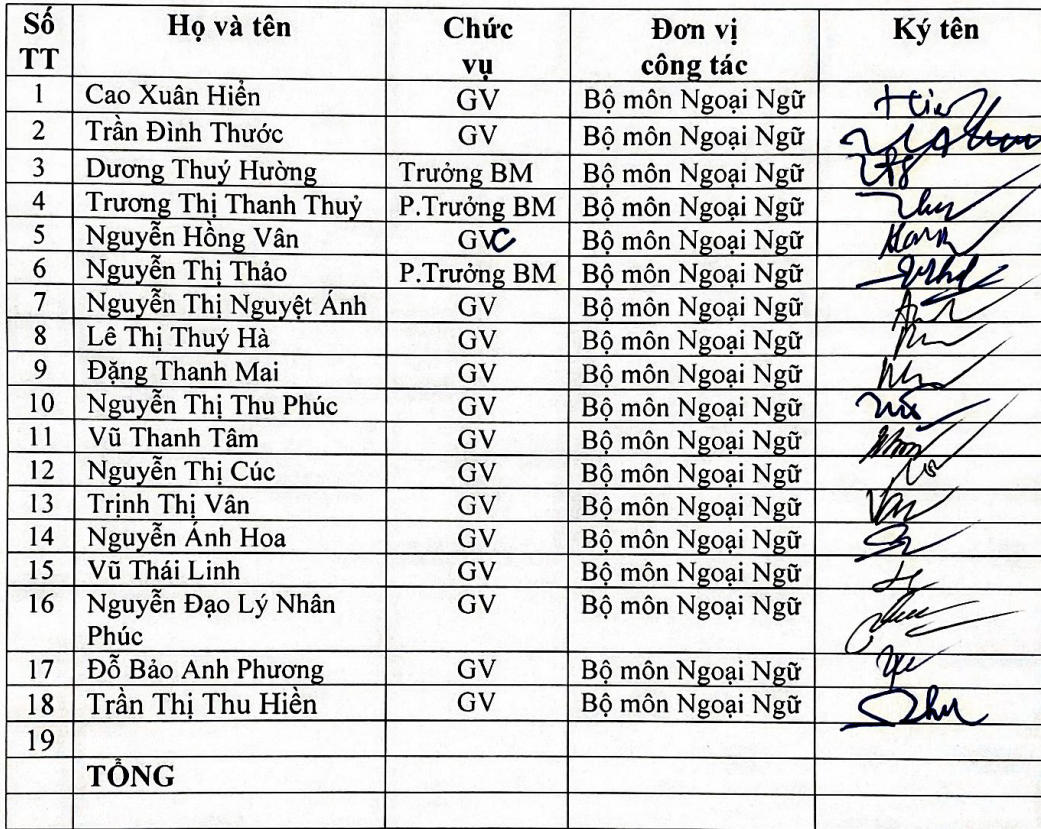 Số TT Họ và tên Chức vụ Đơn vị công tác Ký tên
1 Cao Xuân Hiển GV Bộ môn Ngoại Ngữ
2 Trần Đình Thước GV Bộ môn Ngoại Ngữ
3 Dương Thuý Hường Trưởng BM Bộ môn Ngoại Ngữ
4 Trương Thị Thanh Thuỷ P.Trưởng BM Bộ môn Ngoại Ngữ
5 Nguyễn Hồng Vân GVC Bộ môn Ngoại Ngữ
6 Nguyễn Thị Thảo P.Trưởng BM Bộ môn Ngoại Ngữ
7 Nguyễn Thị Nguyệt Ánh GV Bộ môn Ngoại Ngữ
8 Lê Thị Thuý Hà GV Bộ môn Ngoại Ngữ
9 Đặng Thanh Mai GV Bộ môn Ngoại Ngữ
10 Nguyễn Thị Thu Phúc GV Bộ môn Ngoại Ngữ
11 Vũ Thanh Tâm GV Bộ môn Ngoại Ngữ
12 Nguyễn Thị Cúc GV Bộ môn Ngoại Ngữ
13 Trịnh Thị Vân GV Bộ môn Ngoại Ngữ
14 Nguyễn Ánh Hoa GV Bộ môn Ngoại Ngữ
15 Vũ Thái Linh GV Bộ môn Ngoại Ngữ
16 Nguyễn Đạo Lý Nhân Phúc GV Bộ môn Ngoại Ngữ
17 Đỗ Bảo Anh Phương GV Bộ môn Ngoại Ngữ
18 Trần Thị Thu Hiền GV Bộ môn Ngoại Ngữ
19
TỔNG